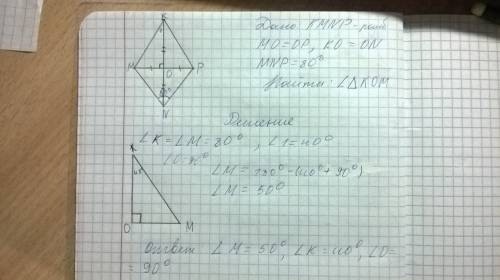 K
M
O
P
N
Дано KMNP - ромб
MO=OP, KO=ON
MNP=80°
Найти: ∠△KOM
Решение
∠K=∠M=80°, ∠1=40°
∠O=90°
∠M=180°-(40°+90°)
∠M=50°
K
40°
O
M
Ответ: ∠M=50°, ∠K=40°, ∠O=
=90°